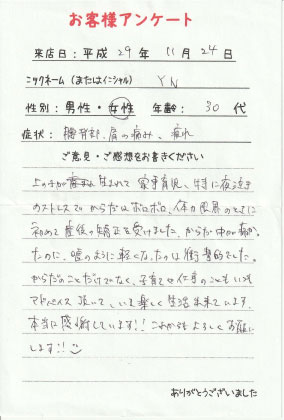 お客様アンケート
来店日：平成 29 年 11 月 24 日
ニックネーム（またはイニシャル） YN
性別：男性・女性 年齢： 30 代
症状： 腰背部、肩の痛み、疲れ
ご意見・ご感想をお書きください
上の子が 生まれて 家事育児、特に夜泣き
のストレスで からだはボロボロ、体力限界のときに
初めて 産後の矯正を受けました。からだ中が痛かっ
たのに、嘘のように軽くなったのは衝撃的でした。
からだのことだけでなく、子育てや仕事のことも いつも
アドバイス 頂いて、いま楽しく生活出来ています。
本当に感謝しています!! これからも よろしくお願い
します!!
ありがとうございました